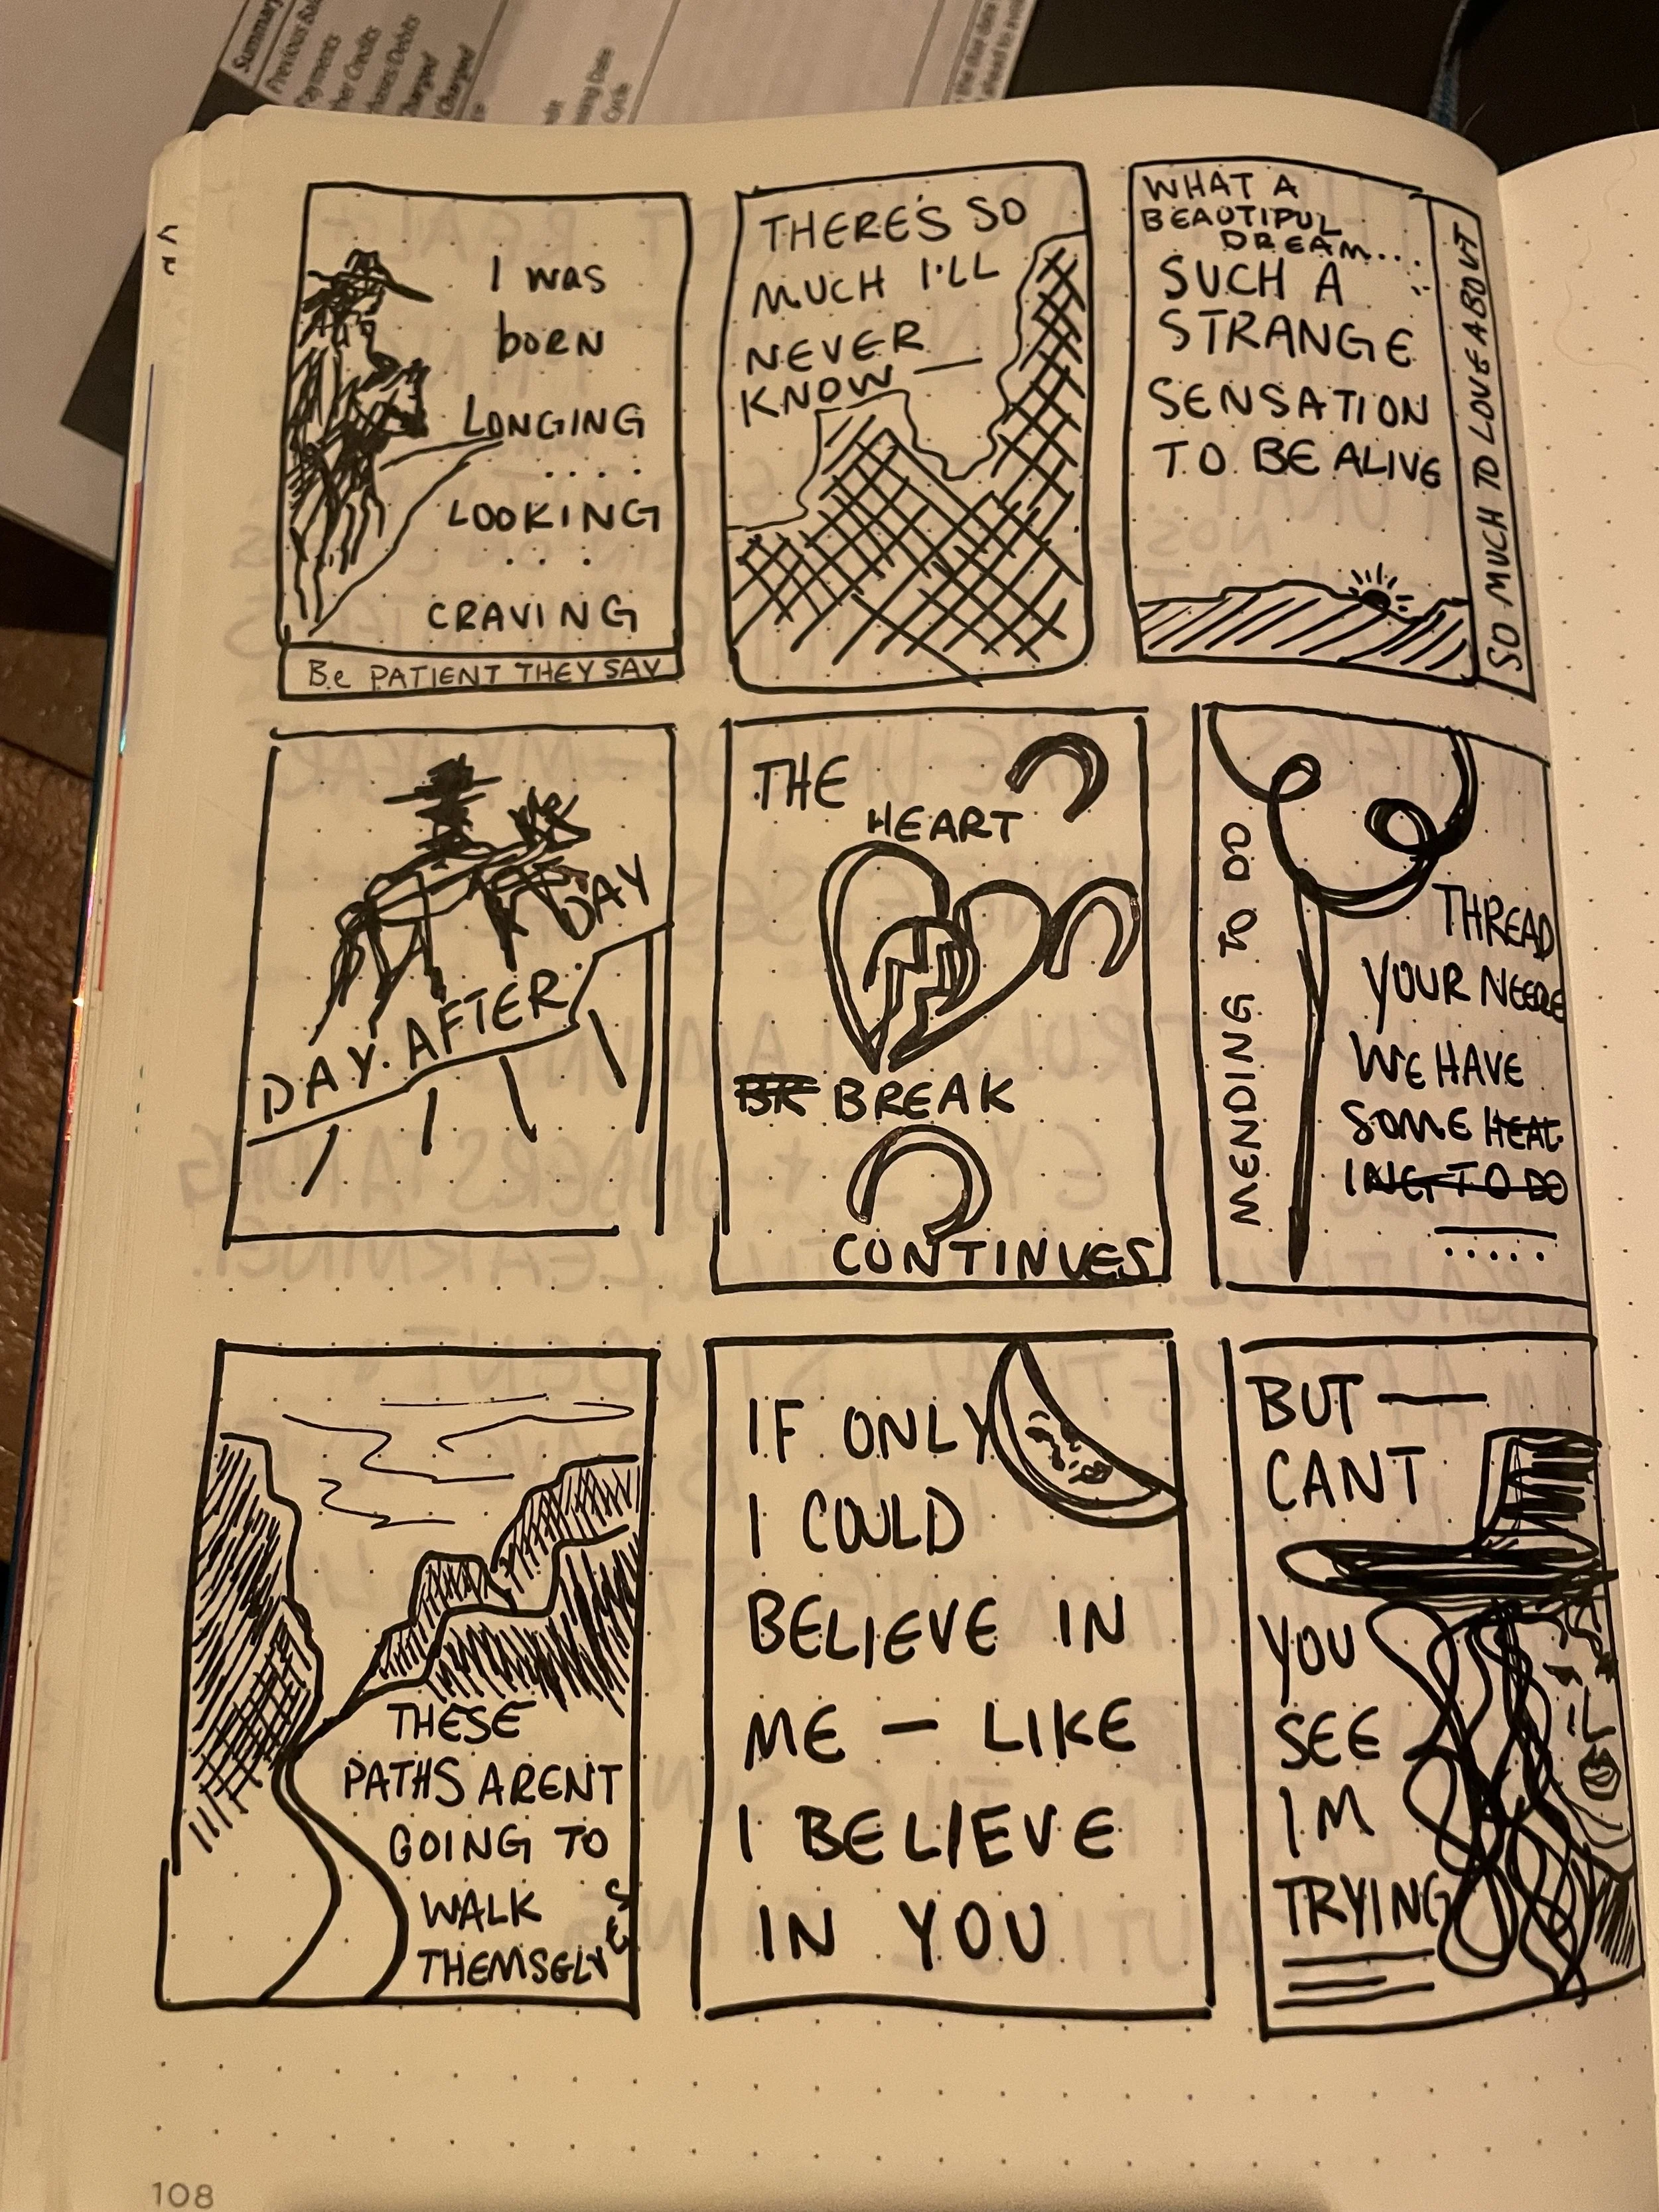 Summary
Payments
Charged
Charged
Cycle
I was
born
LONGING
....
LOOKING
....
CRAVING
Be PATIENT THEY SAY
THERE'S SO
MUCH I'LL
NEVER
KNOW —
WHAT A
BEAUTIFUL
DREAM....
SUCH A
STRANGE
SENSATION
TO BE ALIVE
SO MUCH TO LOVE ABOUT
DAY AFTER DAY
THE
HEART
BREAK
CONTINUES
MENDING TO DO
THREAD
YOUR NEEDLE
WE HAVE
SOME HEAL
ING TO DO
.....
THESE
PATHS ARENT
GOING TO
WALK
THEMSELVES
IF ONLY
I COULD
BELIEVE IN
ME — LIKE
I BELIEVE
IN YOU
BUT —
CANT
YOU
SEE
IM
TRYING
108